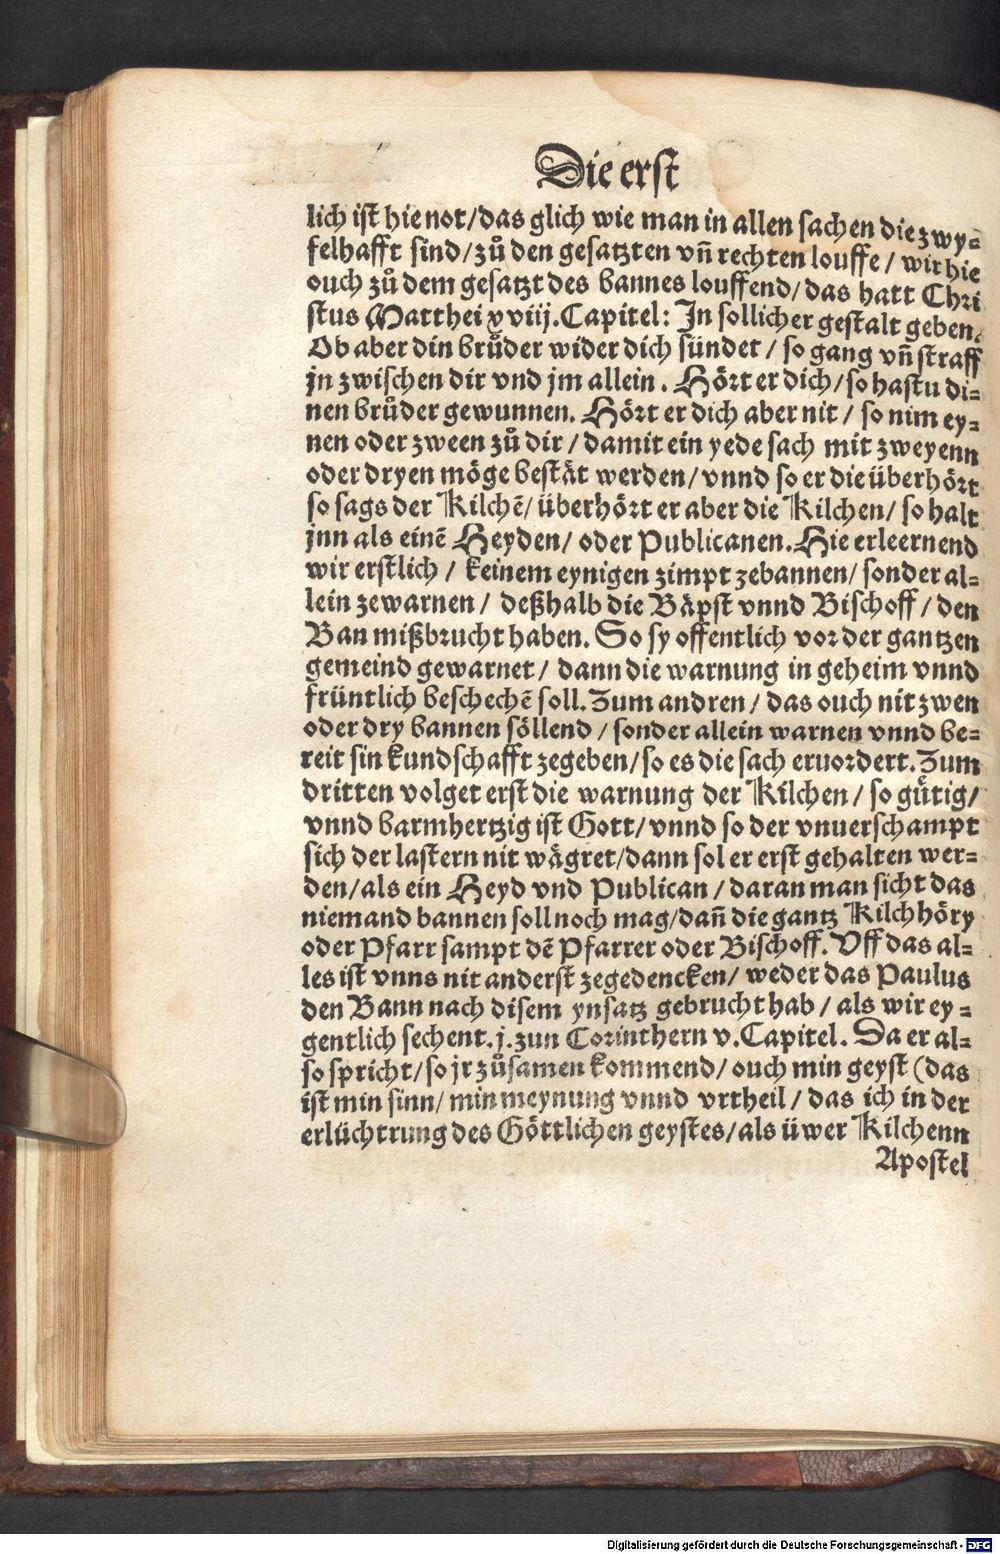 Die erst
lich ist hie not/das glich wie man in allen sachen die zwy⸗
felhafft sind/zů den gesatzten vñ rechten louffe/wir hie
ouch zů dem gesatzt des bannes louffend/das hatt Chri
stus Matthei xviij.Capitel: In sollicher gestalt geben.
Ob aber din brůder wider dich sündet/so gang vñ straff
jn zwischen dir vnd jm allein. Hört er dich/so hastu di⸗
nen brůder gewunnen. Hört er dich aber nit/so nim ey⸗
nen oder zween zů dir/damit ein yede sach mit zweyenn
oder dryen möge bestät werden/vnnd so er die überhört
so sags der Kilchẽ/überhört er aber die Kilchen/so halt
jnn als einẽ Heyden/oder Publicanen.Hie erleernend
wir erstlich/keinem eynigen zimpt zebannen/sonder al⸗
lein zewarnen/deßhalb die Bäpst vnnd Bischoff/den
Ban mißbrucht haben. So sy offentlich vor der gantzen
gemeind gewarnet/dann die warnung in geheim vnnd
früntlich beschechẽ soll. Zum andren/das ouch nit zwen
oder dry bannen söllend/sonder allein warnen vnnd be⸗
reit sin kundschafft zegeben/so es die sach eruordert. Zum
dritten volget erst die warnung der Kilchen/so gütig/
vnnd barmhertzig ist Gott/vnnd so der vnuerschampt
sich der lastern nit wägret/dann sol er erst gehalten wer⸗
den/als ein Heyd vnd Publican/daran man sicht das
niemand bannen soll noch mag/dañ die gantz Kilchhöry
oder Pfarr sampt dẽ Pfarrer oder Bischoff. Vff das al⸗
les ist vnns nit anderst zegedencken/weder das Paulus
den Bann nach disem ynsatz gebrucht hab/als wir ey⸗
gentlich sechent.j.zun Corinthern v.Capitel. Da er al⸗
so spricht/so jr zůsamen kommend/ouch min geyst (das
ist min sinn/min meynung vnnd vrtheil/das ich in der
erlüchtrung des Göttlichen geystes/als üwer Kilchenn
Apostel
Digitalisierung gefördert durch die Deutsche Forschungsgemeinschaft - DFG